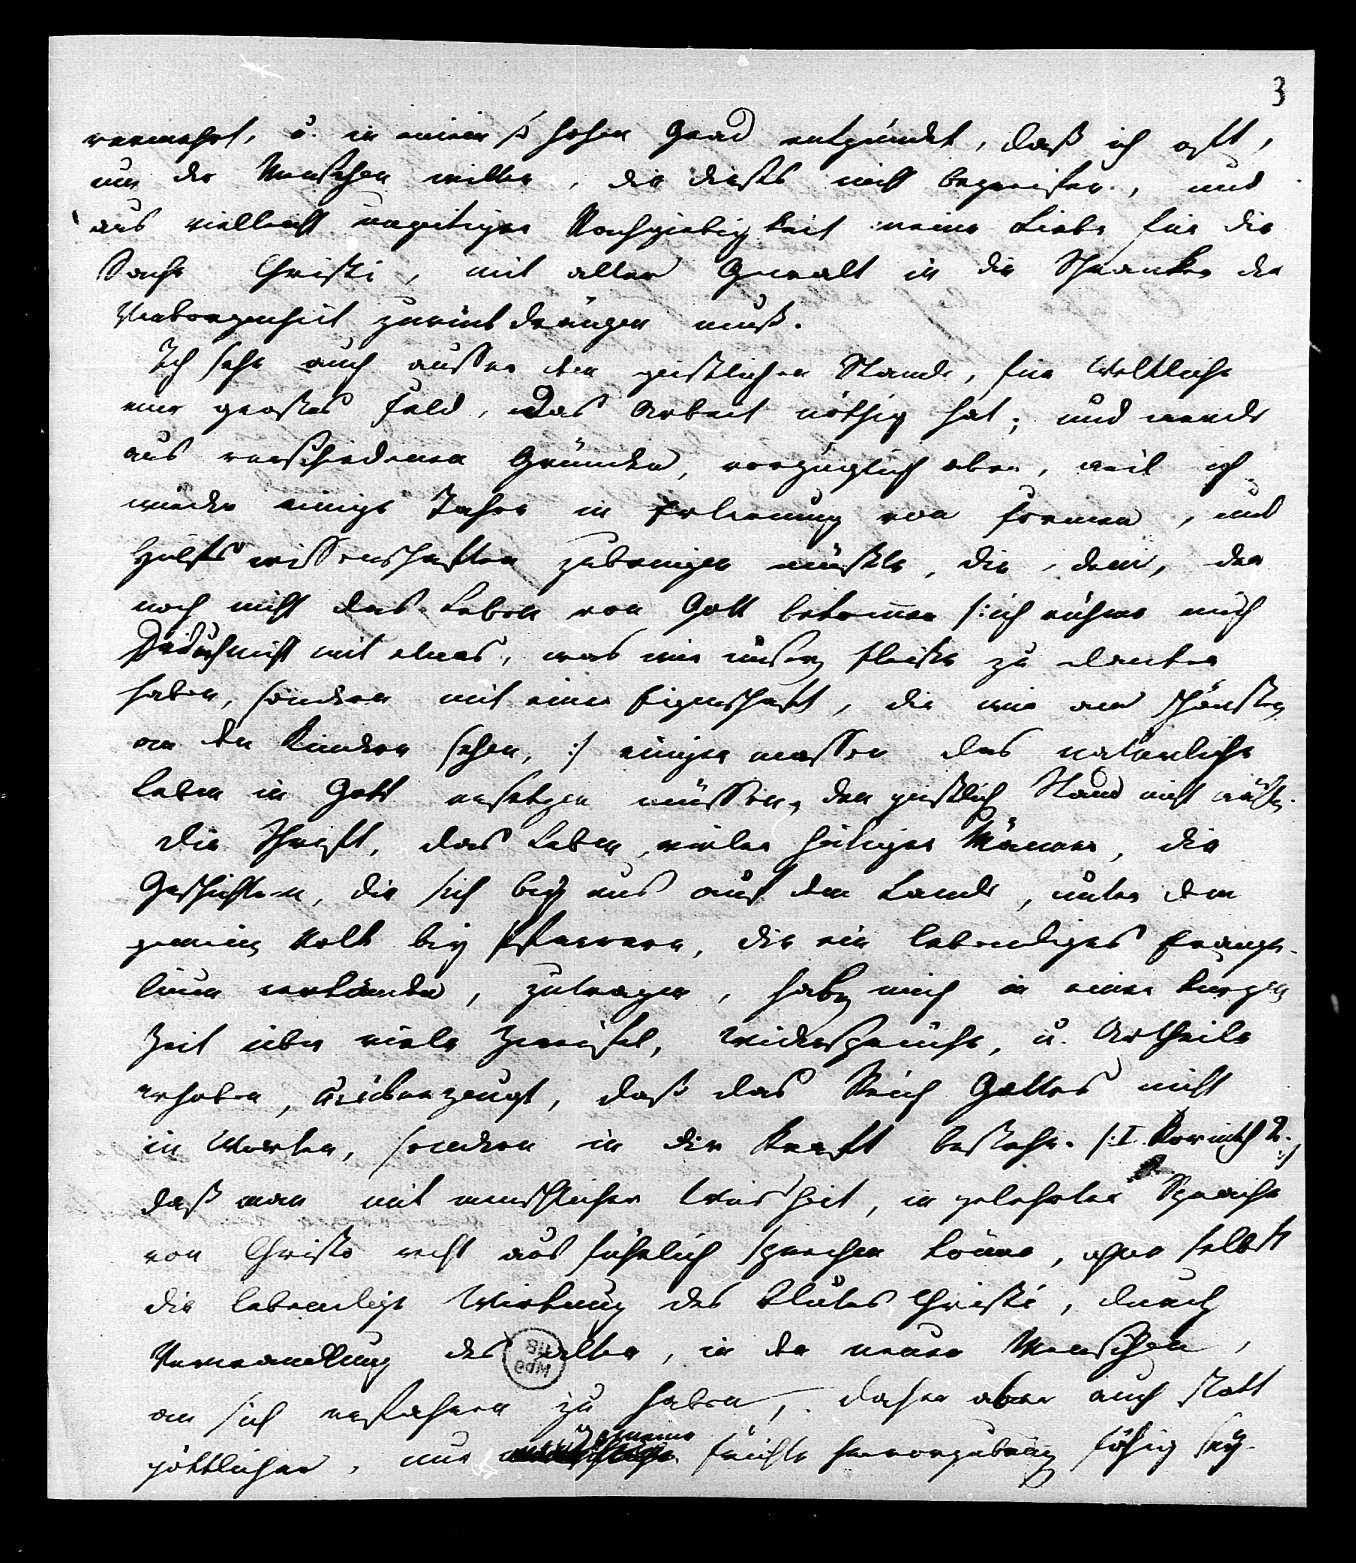 3
vermehrt, u. in einem so hohen Grad entzündet, daß ich oft,
um der Menschen willen, die dieses nicht begreifen, und
aus vielleicht Nachgiebigkeit meine Liebe für die
Sache Christi, mit aller Gewalt in die Schranken der
Verborgenheit zurückdrängen muß.
Ich sehe auch ausser dem geistlichen Stande, für Weltliche
ein großes Feld, das Arbeit nöthig hat; und werde
aus verschiedenen Gründen, vorzüglich aber, weil ich
wieder einige Jahre in Erlernung von Formen, und
Hülfswissenschaften zubringen müßte, die, dem, der
noch nicht das Leben von Gott bekommen /: ich rühme mich
nicht mit etwas, was wir unserm Fleiße zu danken
haben, sondern mit einer Eigenschaft, die wir am schönsten
an den Kindern sehen, :/ einiger massen das natürliche
Leben in Gott ersetzen müssen, den geistlich Stand nicht wähle.
Die Schrift, das Leben vieler heiliger Männer, die
Geschichten, die sich bey uns auf dem Lande, unter dem
gemeinen Volk bey Pfarrern, die ein lebendiges Evange-
lium verkünden, zutragen, haben mich in einer kurzen
Zeit über viele Zweifel, Widersprüche, u. Urtheile
erhoben, u. überzeugt, daß das Reich Gottes nicht
in Worten, sondern in der Kraft bestehe. /: I. Korinth 2. :/
daß man mit menschlicher Weisheit, in gelehrter Sprache
von Christo recht ausführlich sprechen könne, ohne selbst
die lebendige Wirkung des Blutes Christi, durch
Verwandlung des alten, in den neuen Menschen,
an sich erfahren zu haben, daher aber auch statt
göttlicher, nur Früchte hervorzubringen fähig sey.